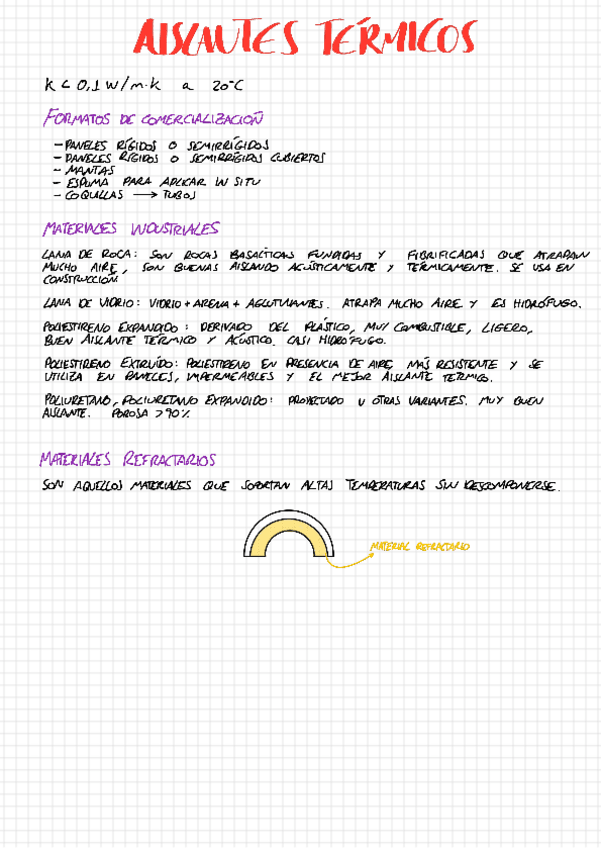 AISLANTES TÉRMICOS
K < 0,1 W/m·K a 20°C
FORMATOS DE COMERCIALIZACIÓN
- PANELES RÍGIDOS O SEMIRRÍGIDOS
- PANELES RÍGIDOS O SEMIRRÍGIDOS CUBIERTOS
- MANTAS
- ESPUMA PARA APLICAR IN SITU
- COQUILLAS → TUBOS
MATERIALES INDUSTRIALES
LANA DE ROCA: SON ROCAS BASÁLTICAS FUNDIDAS Y FIBRIFICADAS QUE ATRAPAN
MUCHO AIRE, SON BUENAS AISLANDO ACÚSTICAMENTE Y TÉRMICAMENTE. SE USA EN
CONSTRUCCIÓN.
LANA DE VIDRIO: VIDRIO + ARENA + AGLUTINANTES. ATRAPA MUCHO AIRE Y ES HIDRÓFUGO.
POLIESTIRENO EXPANDIDO: DERIVADO DEL PLÁSTICO, MUY COMBUSTIBLE, LIGERO,
BUEN AISLANTE TÉRMICO Y ACÚSTICO. CASI HIDRÓFUGO.
POLIESTIRENO EXTRUÍDO: POLIESTIRENO EN PRESENCIA DE AIRE, MÁS RESISTENTE Y SE
UTILIZA EN PANELES, IMPERMEABLES Y EL MEJOR AISLANTE TERMICO.
POLIURETANO, POLIURETANO EXPANDIDO: PROYECTADO U OTRAS VARIANTES. MUY BUEN
AISLANTE. POROSA > 90%
MATERIALES REFRACTARIOS
SON AQUELLOS MATERIALES QUE SOPORTAN ALTAS TEMPERATURAS SIN DESCOMPONERSE.
MATERIAL REFRACTARIO